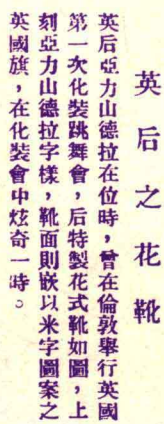 英后之花靴
英后亞力山德拉在位時，曾在倫敦舉行英國
第一次化裝跳舞會，后特製花式靴如圖，上
刻亞力山德拉字樣，靴面則嵌以米字圖案之
英國旗，在化裝會中炫奇一時。